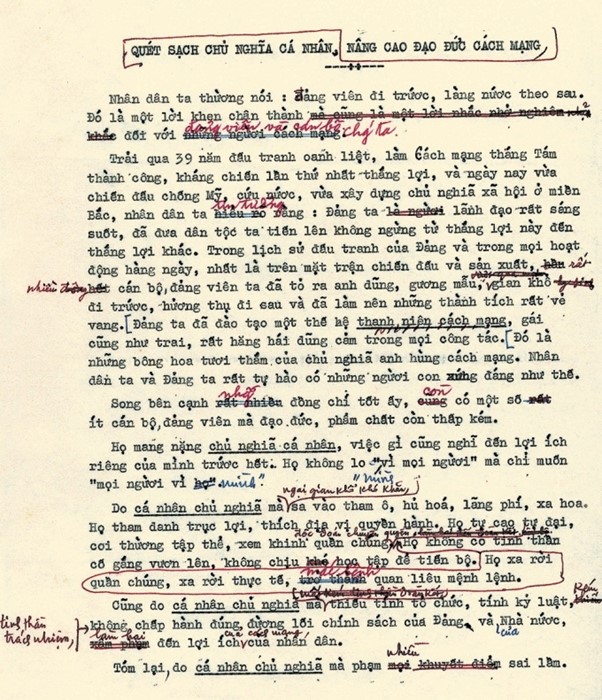 QUÉT SẠCH CHỦ NGHĨA CÁ NHÂN, NÂNG CAO ĐẠO ĐỨC CÁCH MẠNG,
Nhân dân ta thường nói : đảng viên đi trước, làng nước theo sau.
Đó là một lời khen chân thành mà cũng là một lời nhắc nhở nghiêm
khắc đối với những người cách mạng. đảng viên và cán bộ chúng ta.
Trải qua 39 năm đấu tranh oanh liệt, làm Cách mạng thắng Tám
thành công, kháng chiến lần thứ nhất thắng lợi, và ngày nay vừa
chiến đấu chống Mỹ, cứu nước, vừa xây dựng chủ nghĩa xã hội ở miền
Bắc, nhân dân ta hiểu rõ tin tưởng rằng : Đảng ta là người lãnh đạo rất sáng
suốt, đã đưa dân tộc ta tiến lên không ngừng từ thắng lợi này đến
thắng lợi khác. Trong lịch sử đấu tranh của Đảng và trong mọi hoạt
động hàng ngày, nhất là trên mặt trận chiến đấu và sản xuất, rất
nhiều cán bộ, đảng viên ta đã tỏ ra anh dũng, gương mẫu, gian khổ
đi trước, hưởng thụ đi sau và đã làm nên những thành tích rất vẻ
vang. [Đảng ta đã đào tạo một thế hệ thanh niên cách mạng, gái
cũng như trai, rất hăng hái dũng cảm trong mọi công tác. [Đó là
những bông hoa tươi thắm của chủ nghĩa anh hùng cách mạng. Nhân
dân ta và Đảng ta rất tự hào có những người con xứng đáng như thế.
Song bên cạnh rất nhiều những đồng chí tốt ấy, cũng còn có một số rất
ít cán bộ, đảng viên mà đạo đức, phẩm chất còn thấp kém.
Họ mang nặng chủ nghĩa cá nhân, việc gì cũng nghĩ đến lợi ích
riêng của mình trước hết. Họ không lo "vì mọi người" mà chỉ muốn
"mọi người vì họ" mình"
ngại gian khổ khó khăn,
Do cá nhân chủ nghĩa mà sa vào tham ô, hủ hoá, lãng phí, xa hoa.
Họ tham danh trục lợi, thích địa vị quyền hành. Họ tự cao tự đại,
độc đoán chuyên quyền,
coi thường tập thể, xem khinh quần chúng, Họ không có tinh thần
cố gắng vươn lên, không chịu khó học tập để tiến bộ. Họ xa rời
quần chúng, xa rời thực tế, trở thành mắc bệnh quan liêu mệnh lệnh.
Cũng do cá nhân chủ nghĩa mà thiếu tính tổ chức, tính kỷ luật,
tinh thần trách nhiệm, không chấp hành đúng đường lối chính sách của Đảng và của Nhà nước,
xâm phạm làm hại đến lợi ích của cách mạng, của nhân dân.
Tóm lại, do cá nhân chủ nghĩa mà phạm mọi khuyết điểm nhiều sai lầm.